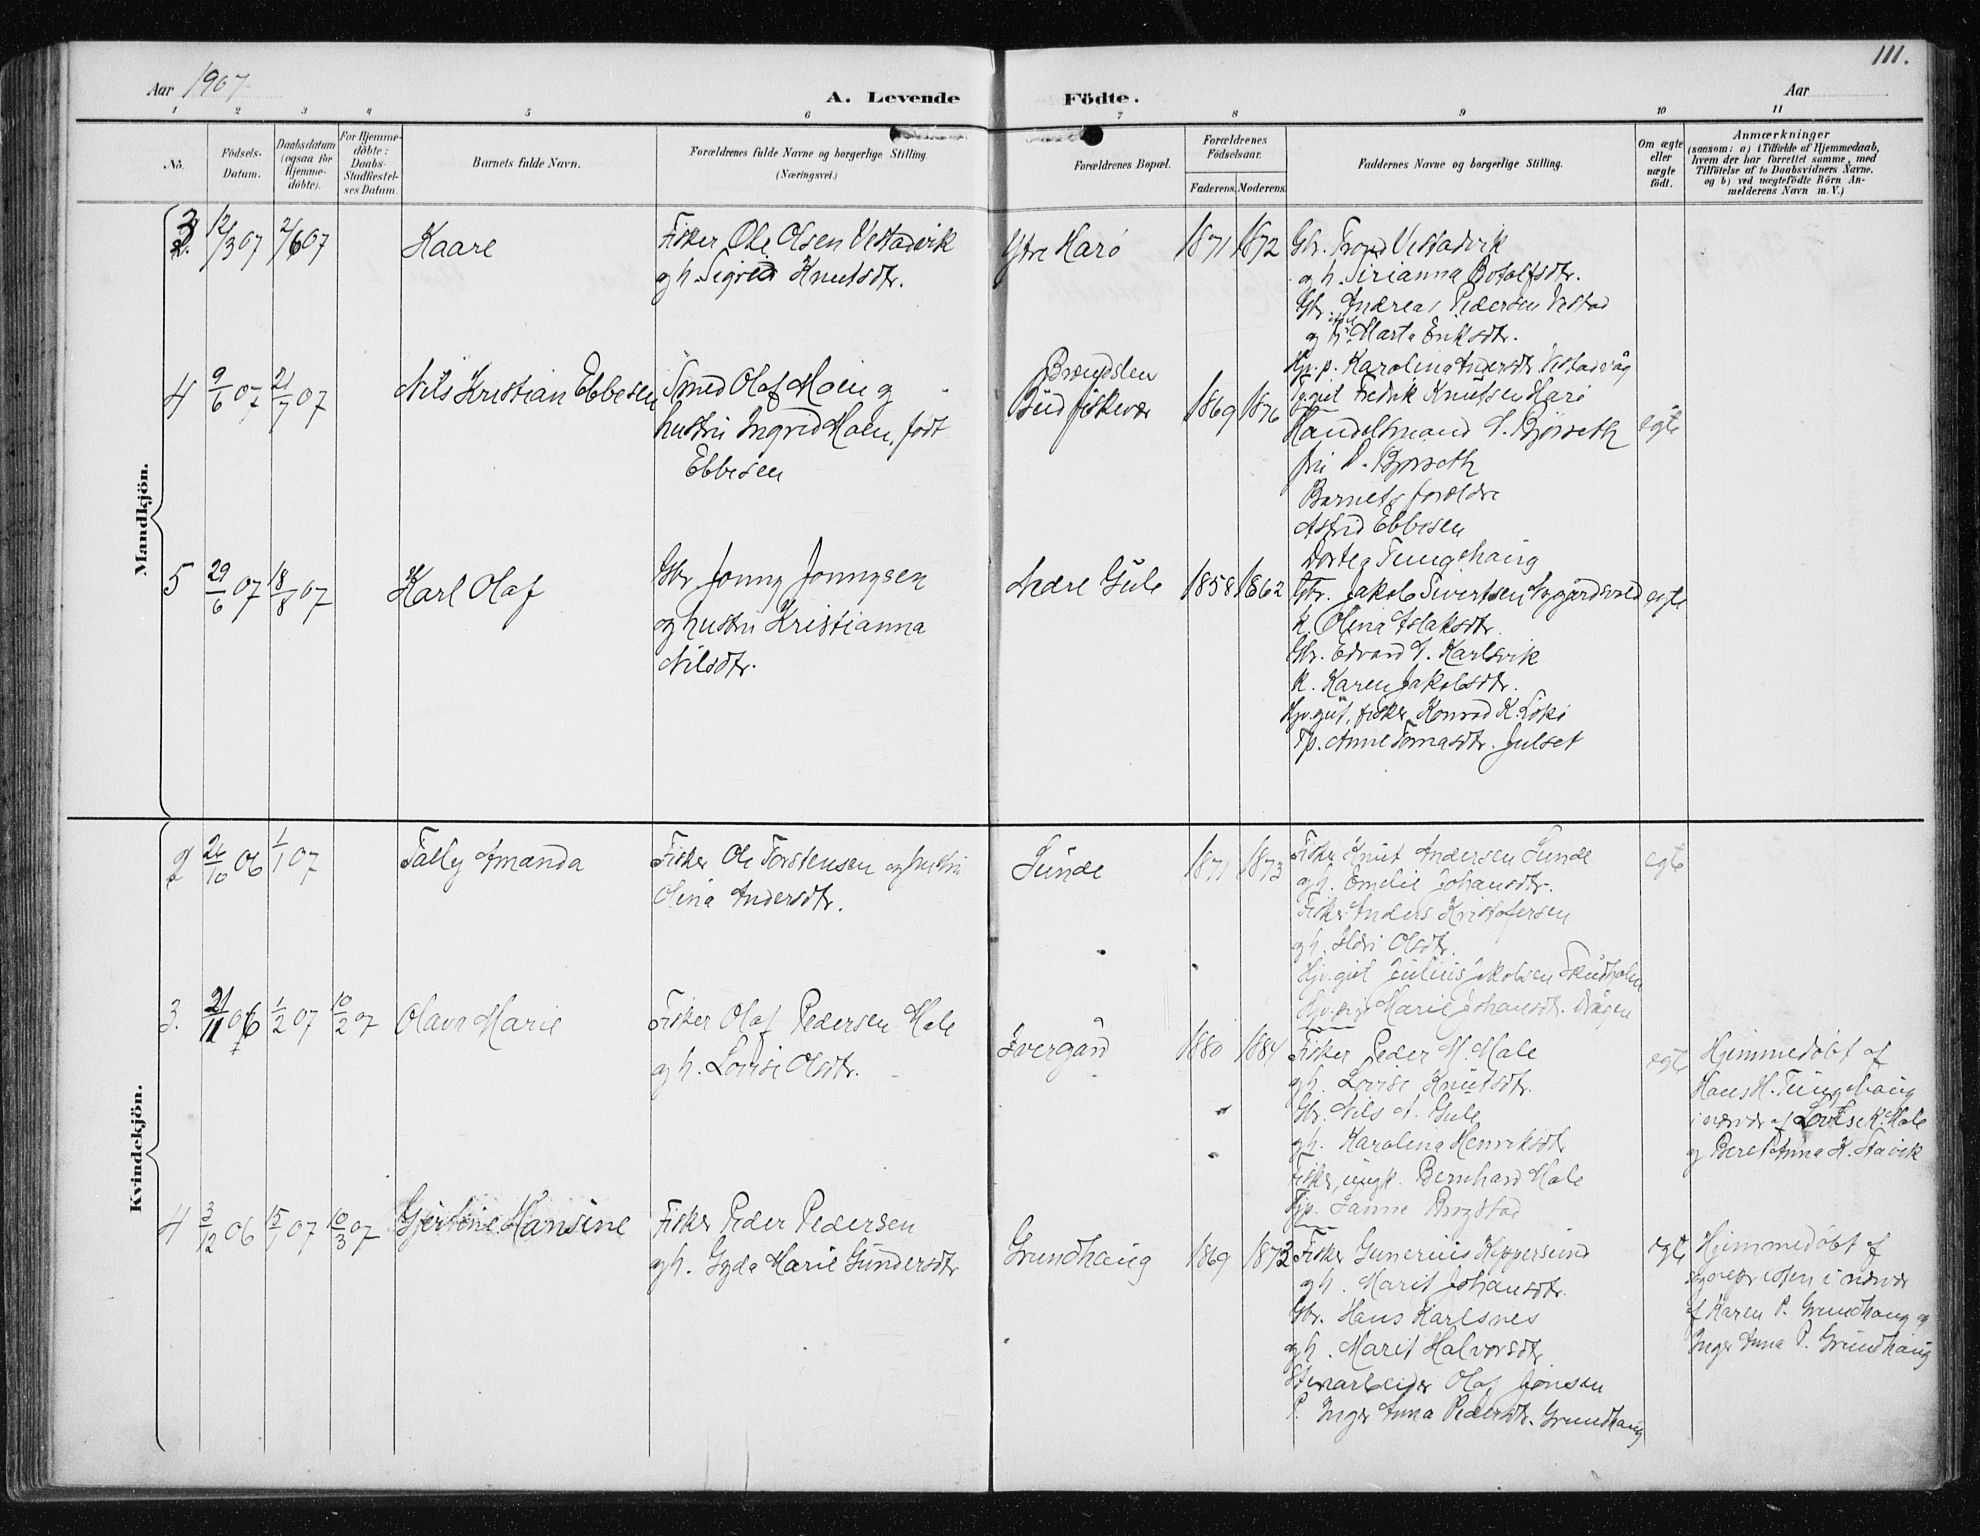 111.
Aar 1907
A. Levende
Födte.
Aar
1 2 3 4 5 6 7 8 9 10 11
No.
Födsels-
Datum.
Daabsdatum
(ogsaa for
Hjemme-
döbte).
For Hjemme-
döbte:
Daabs-
Stadfæstel-
ses Datum.
Barnets fulde Navn.
Forældrenes fulde Navne og borgerlige Stilling
(Næringsvei.)
Forældrenes Bopæl.
Forældrenes
Födselsaar.
Faderens. Moderens.
Faddernes Navne og borgerlige Stilling.
Om ægte
eller
uægte
födt.
Anmærkninger
(saasom: a) i Tilfælde af Hjemmedaab,
hvem der har forrettet samme, med
Tilföielse af to Daabsvidners Navne,
og b) ved uægtefödte Börn An-
melderens Navn m. V.)
Mandkjön.
3 12/3 07 2/6 07 Kaare
Fisker Ole Olsen Vestadvik
og h. Sigrid Knutsdtr.
Ytre Harö 1871 1872
Gbr. Trond Vestadvik
og h. Sirianna Botolfsdtr.
Gbr. Andreas Pedersen Vestad
og h. Marta Eriksdtr.
Hjv. p. Karolina Andersdtr. Vestadvåg
Fredrik Knutsen Harö
4 9/6 07 21/7 07 Nils Kristian Ebbesen
Smed Olaf Moen og
hustru Ingrid Moen, født
Ebbesen
Bud fiskevær 1869 1876
Handelsmand L. Bjørseth
fru P. Bjørseth
Barnets forældre
Astrid Ebbesen
Dortea Tungehaug
egte
5 29/6 07 18/8 07 Karl Olaf
Gbr Jonny Jonnysen
og hustru Kristianna
Nilsdtr.
Nedre Gule 1858 1862
Gbr. Jakob Sivertsen Nygårdsvold
k. Olina Aslaksdtr.
Gbr. Edvard L. Karlsvik
k. Karen Jakobsdtr.
Hjv. gut, fisker Konrad K. Löke
Tp. Anne Tomasdtr. Julset
egte
Kvindekjön.
2 26/10 06 1/1 07 Tally Amanda
Fisker Ole Torstensen og hustru
Olina Andersdtr.
Sunde 1871 1873
Fisker Knut Andersen Sunde
og h. Emelie Johansdtr.
Fisker Anders Kristofersen
og h. Olsdtr.
Hjv. gut Julius Jakobsen
Marie Johansdtr.
egte
3. 21/11 06 1/2 07 10/2 07 Olava Marie
Fisker Olaf Pedersen Male
og h. Lovise Olsdtr.
1880 1884
Fisker Peder M. Male
og h. Lovise Knutsdtr.
Gbr. Nils N. Gule
og h. Karolina Henriksdtr
Fisker, ungk. Bernhard Male
Tjp. Sanne
egte
Hjemmedøbt af
Hans H. Tungehaug
i nærvær af Lovise K. Male
og Beret Anna K. Stavik
4 3/12 06 15/1 07 10/3 07 Gjertine Hansine
Fisker Peder Pedersen
og h. Gyda Marie Gundersdtr
Grundhaug 1869 1873
Fisker Gunerius
og h. Marit Johansdtr.
Gbr. Hans Karlsnes
og h. Marit Halvorsdtr.
Stenarbeider Olaf Jonsen
P. Inger Anna Pedersdtr. Grundhaug
egte
Hjemmedøbt af
sognepresten i nærvær
af Karen P. Grundhaug og
Inger Anna P. Grundhaug